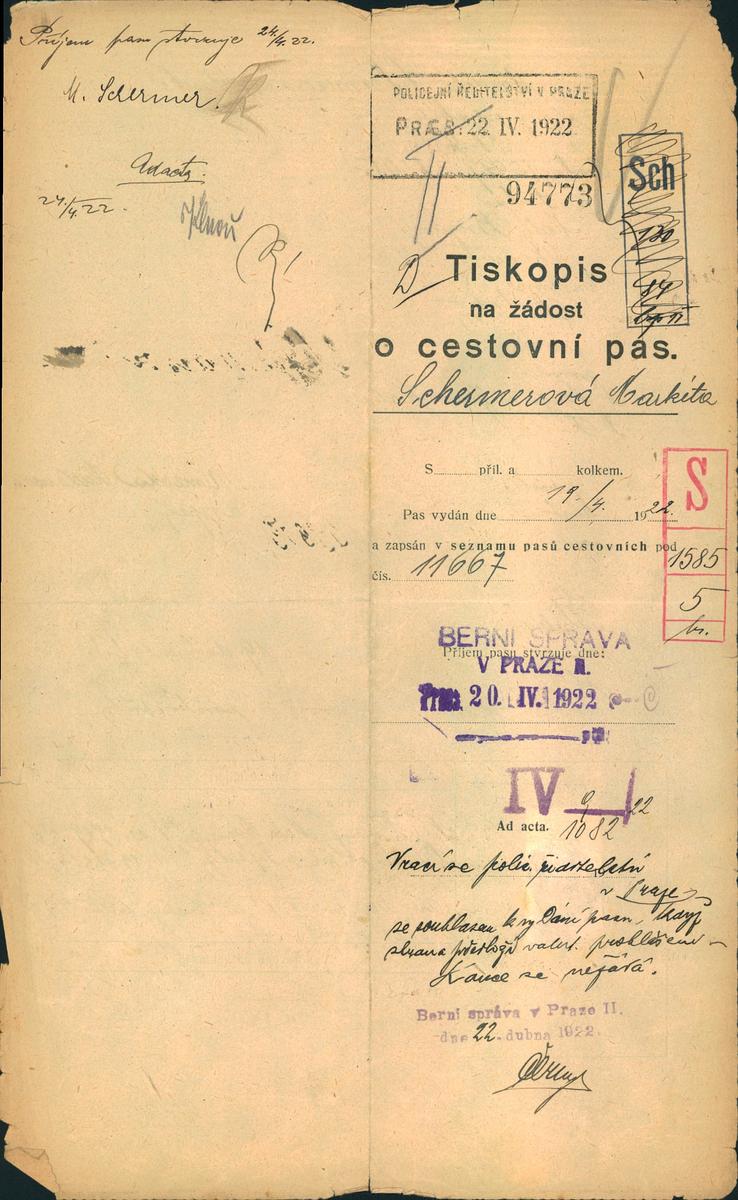 Příjem pasu stvrzuje 24/4. 22.
M. Schermer.
Adacta.
24/4. 22.
POLICEJNÍ ŘEDITELSTVÍ V PRAZE
PRÆS: 22 IV. 1922
94773
Sch
130
Tiskopis
na žádost
o cestovní pas.
Schermerová Markéta
S příl. a kolkem.
Pas vydán dne 19./4. 1922.
a zapsán v seznamu pasů cestovních pod
čís. 11667
S
1585
5
Příjem pasu stvrzuje dne:
BERNÍ SPRÁVA
V PRAZE II.
Praes. 20. IV. 1922
IV 9/1082 22
Ad acta.
Vrací se polic. ředitelství
v Praze
se souhlasem k vydání pasu, když
strana předloží valut. prohlášení
Kauce se nežádá.
Berní správa v Praze II.
dne 22. dubna 1922.